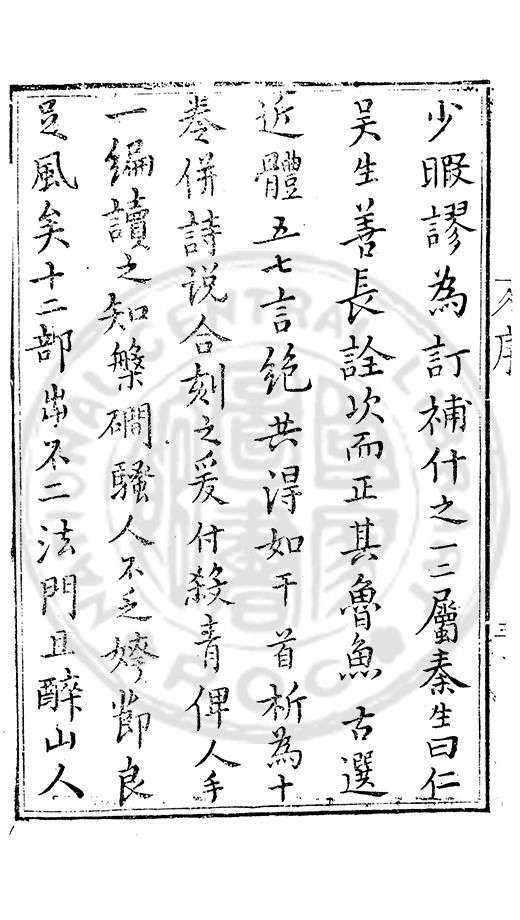 少暇謬為訂補什之一二屬秦生曰仁
吴生善長詮次而正其魯魚古選
近體五七言絶共得如干首析為十
卷併詩説合刻之爰付殺青俾人手
一編讀之知槃磵騷人不乏姱節良
足風矣十二部出不二法門且醉山人
序
三
NATIONAL CENTRAL LIBRARY
R.O.C.